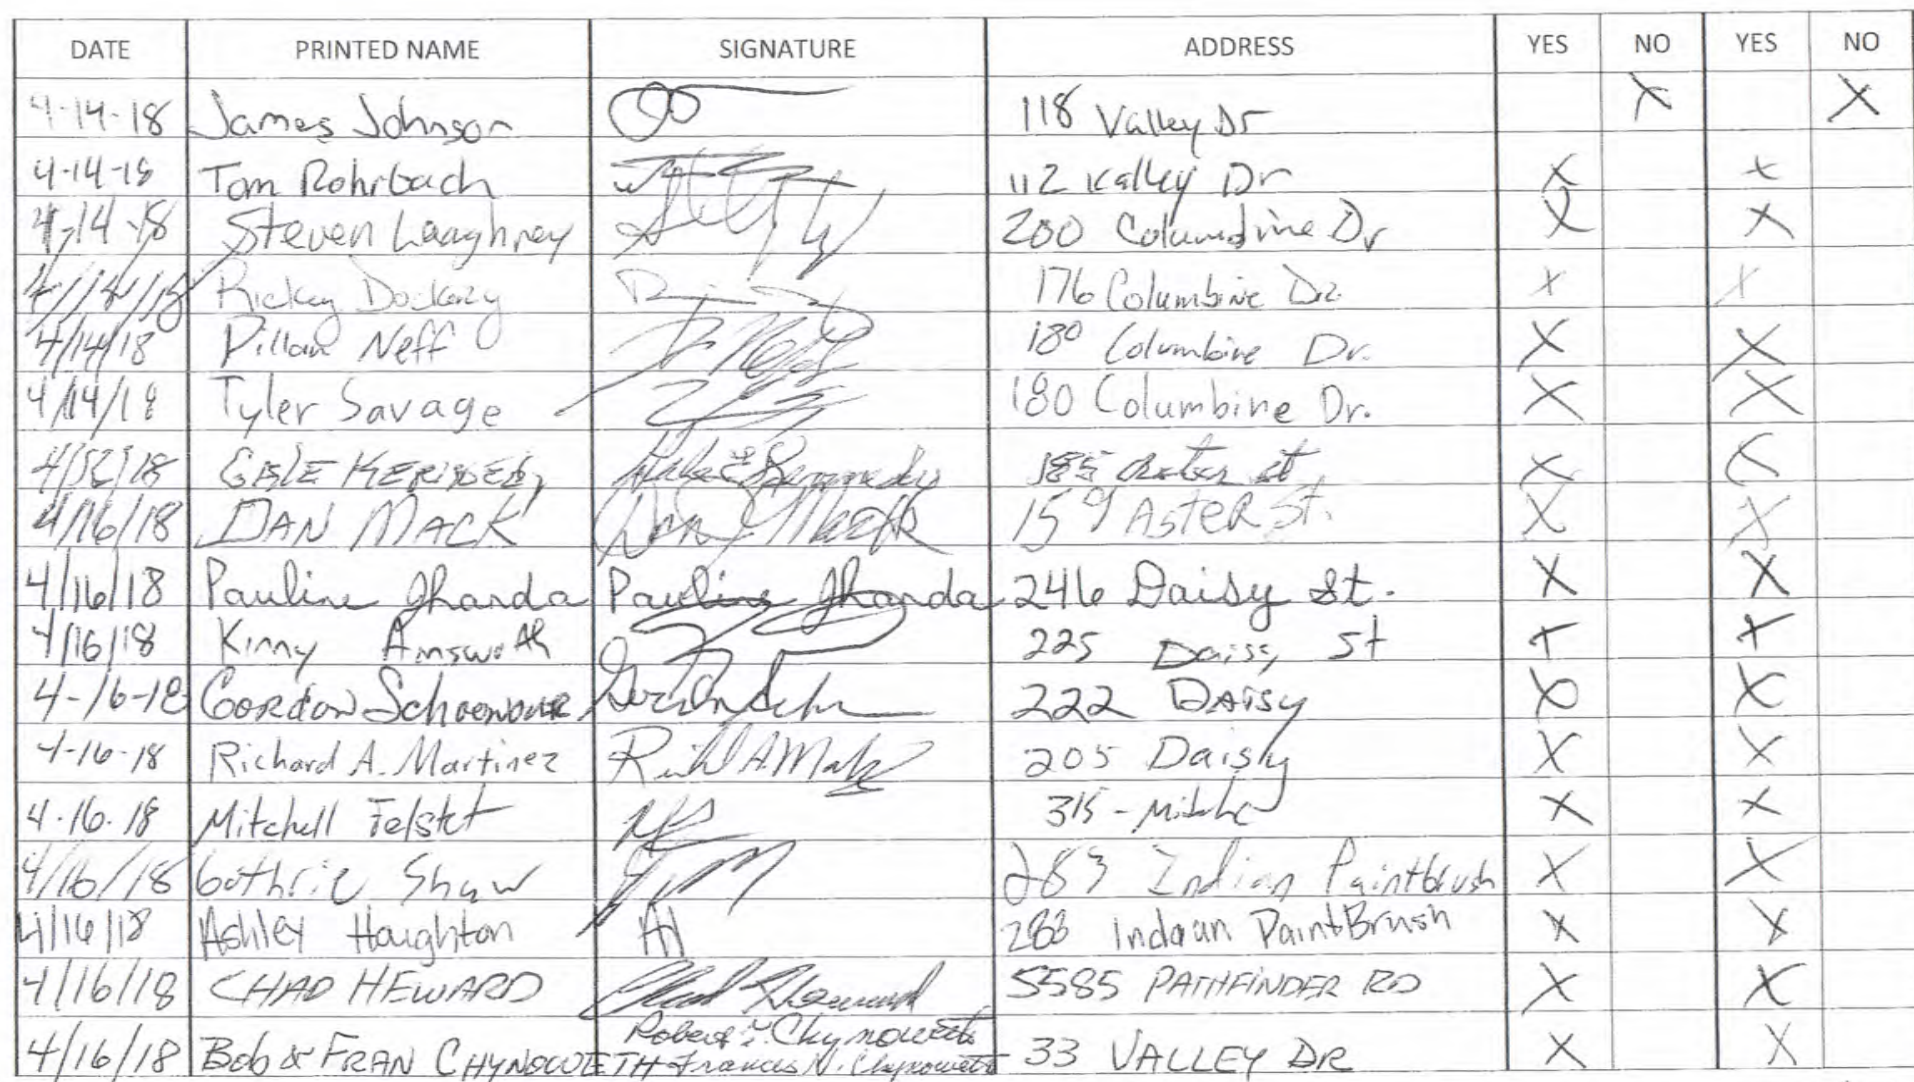 DATE PRINTED NAME SIGNATURE ADDRESS YES NO YES NO
4-14-18 James Johnson 118 Valley Dr X X
4-14-18 Tom Rohrbach 112 Valley Dr X X
4-14-18 Steven Laaghney 200 Columbine Dr X X
4/14/18 Rickey Dockery 176 Columbine Dr. X X
4/14/18 Dillan Neff D Neff 180 Columbine Dr. X X
4/14/18 Tyler Savage 180 Columbine Dr. X X
4/ /18 GALE 185 st X X
4/16/18 DAN MACK Dan Mack 159 ASTER St. X X
4/16/18 Pauline Jhanda Pauline Jhanda 246 Daisy St. X X
4/16/18 Kinny Amsworth 225 Daisy St X X
4-16-18 GORDON 222 DAISY X X
4-16-18 Richard A. Martinez 205 Daisy X X
4-16-18 Mitchell 315 - X X
4/16/18 Guthrie Shaw 283 Indian Paintbrush X X
4/16/18 Ashley Haughton AH 283 Indaan PaintBrush X X
4/16/18 CHAD HEWARD Chad Heward 5585 PATHFINDER RD X X
4/16/18 Bob & FRAN CHYNOWETH Robert Chynoweth Frances N. Chynoweth 33 VALLEY DR X X